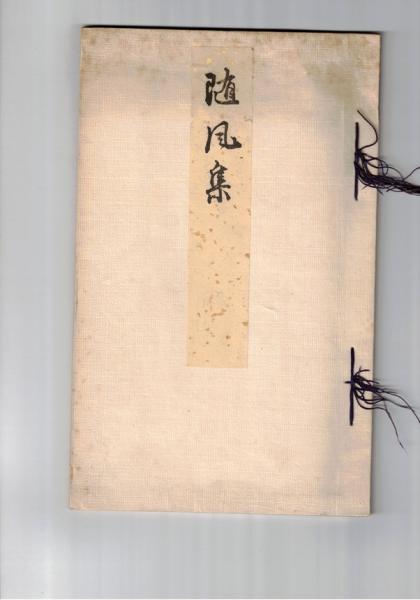 随風集